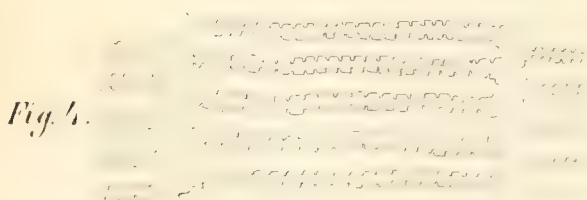 Fig. 4.